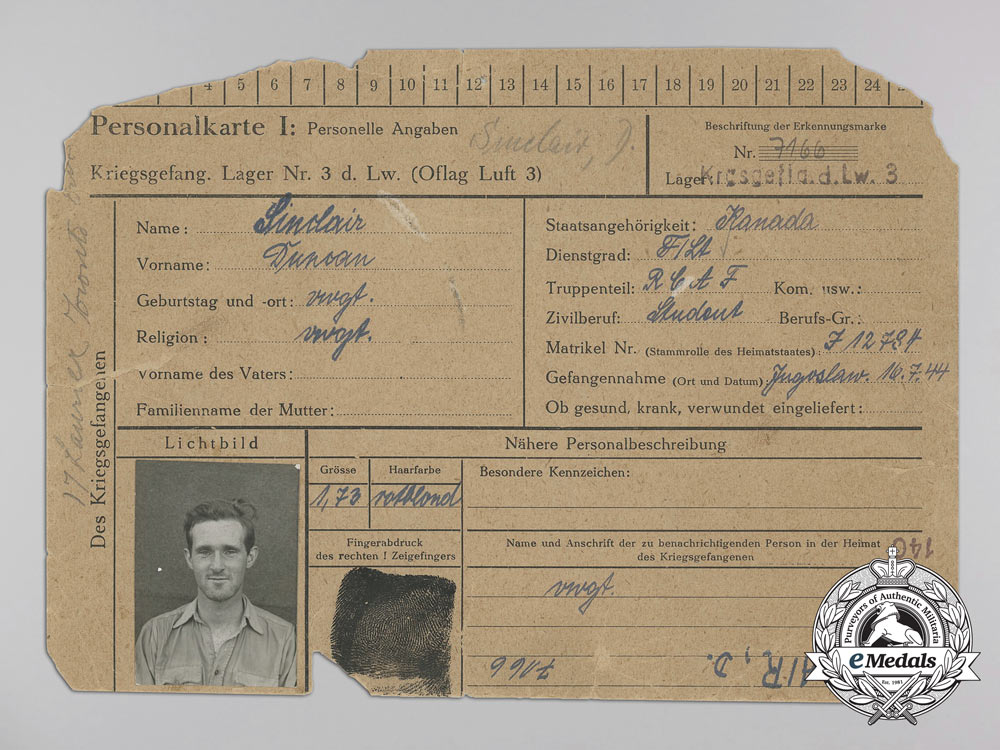 4 5 6 7 8 9 10 11 12 13 14 15 16 17 18 19 20 21 22 23 24
Personalkarte I: Personelle Angaben
Sinclair, D.
Kriegsgefang. Lager Nr. 3 d. Lw. (Oflag Luft 3)
Beschriftung der Erkennungsmarke
Nr. 7166
Lager: Krgsgef.Lg.d.Lw. 3
Des Kriegsgefangenen
17 Laurier Toronto
Name: Sinclair
Vorname: Duncan
Geburtstag und -ort: vwgt.
Religion: vwgt.
Vorname des Vaters:
Familienname der Mutter:
Staatsangehörigkeit: Kanada
Dienstgrad: F/Lt
Truppenteil: RCAF Kom. usw.:
Zivilberuf: Student Berufs-Gr.:
Matrikel Nr. (Stammrolle des Heimatstaates): J 12784
Gefangennahme (Ort und Datum): Jugoslaw. 16.7.44
Ob gesund, krank, verwundet eingeliefert:
Lichtbild
Nähere Personalbeschreibung
Grösse Haarfarbe
1,73 rotblond
Besondere Kennzeichen:
Fingerabdruck
des rechten ! Zeigefingers
Name und Anschrift der zu benachrichtigenden Person in der Heimat
des Kriegsgefangenen
140
vwgt.
7166
AIR, D.
Purveyors of Authentic Militaria
eMedals
Est. 1981